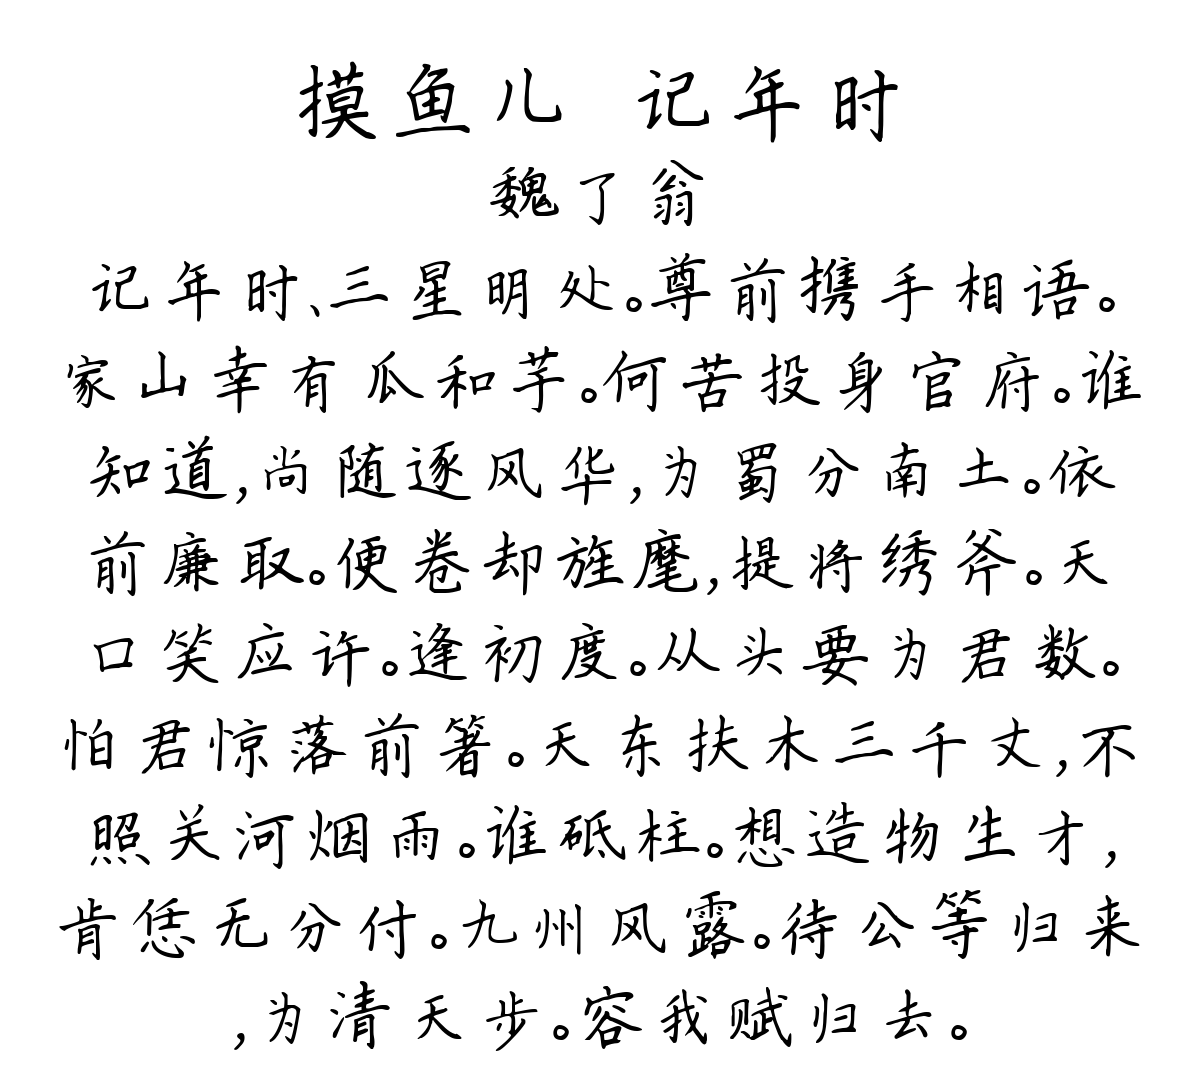 摸鱼儿 记年时
魏了翁
记年时、三星明处。尊前携手相语。
家山幸有瓜和芋。何苦投身官府。谁
知道,尚随逐风华,为蜀分南土。依
前廉取。便卷却旌麾,提将绣斧。天
口笑应许。逢初度。从头要为君数。
怕君惊落前箸。天东扶木三千丈,不
照关河烟雨。谁砥柱。想造物生才,
肯恁无分付。九州风露。待公等归来
,为清天步。容我赋归去。